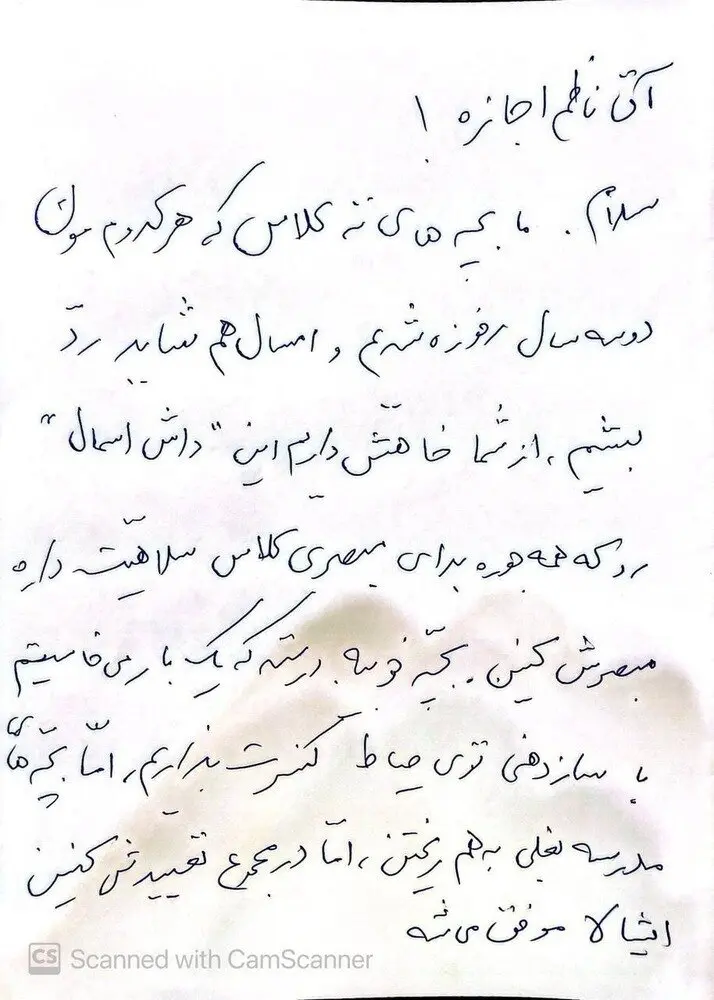 آقای ناظم اجازه!
سلام. ما بچه های ته کلاس که هرکدوم مون
دوسه سال رفوزه شدیم و امسال هم شاید ردّ
بشیم، از شما خاهش داریم این "داش اسمال"
رو که همه جوره برای مبصری کلاس سلاهیّت داره
مبصرش کنین. بچّه خوبیه. درسته که یک بار می خاستیم
با سازدهنی توی حیاط کنسرت بذاریم، امّا بچّه های
مدرسه بغلی به هم ریختن، امّا در مجموع تعییدش کنین
ایشالا موفق می شه
CS Scanned with CamScanner